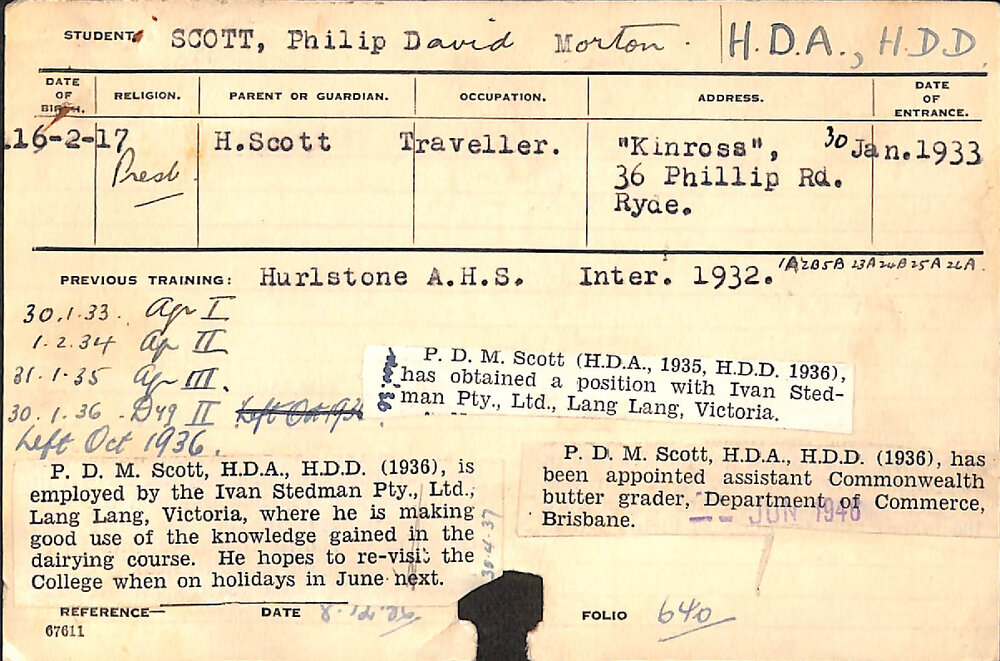 STUDENT, SCOTT, Philip David Morton. H.D.A., H.D.D.
DATE OF BIRTH. RELIGION. PARENT OR GUARDIAN. OCCUPATION. ADDRESS. DATE OF ENTRANCE.
16-2-17 H.Scott Traveller. "Kinross", 30 Jan. 1933
Presb. 36 Phillip Rd.
Ryde.
PREVIOUS TRAINING: Hurlstone A.H.S. Inter. 1932. 1A 2B 5B 23A 24B 25A 26A
30.1.33. Agr I
1.2.34 Agr II
31.1.35 Agr III.
30.1.36 Dyg II Left Oct 193
Left Oct 1936.
P. D. M. Scott (H.D.A., 1935, H.D.D. 1936),
has obtained a position with Ivan Sted-
man Pty., Ltd., Lang Lang, Victoria.
P. D. M. Scott, H.D.A., H.D.D. (1936), is
employed by the Ivan Stedman Pty., Ltd.,
Lang Lang, Victoria, where he is making
good use of the knowledge gained in the
dairying course. He hopes to re-visit the
College when on holidays in June next.
30.4.37
P. D. M. Scott, H.D.A., H.D.D. (1936), has
been appointed assistant Commonwealth
butter grader, Department of Commerce,
Brisbane.
JUN 1940
REFERENCE— DATE 8.12.36 FOLIO 640
67611